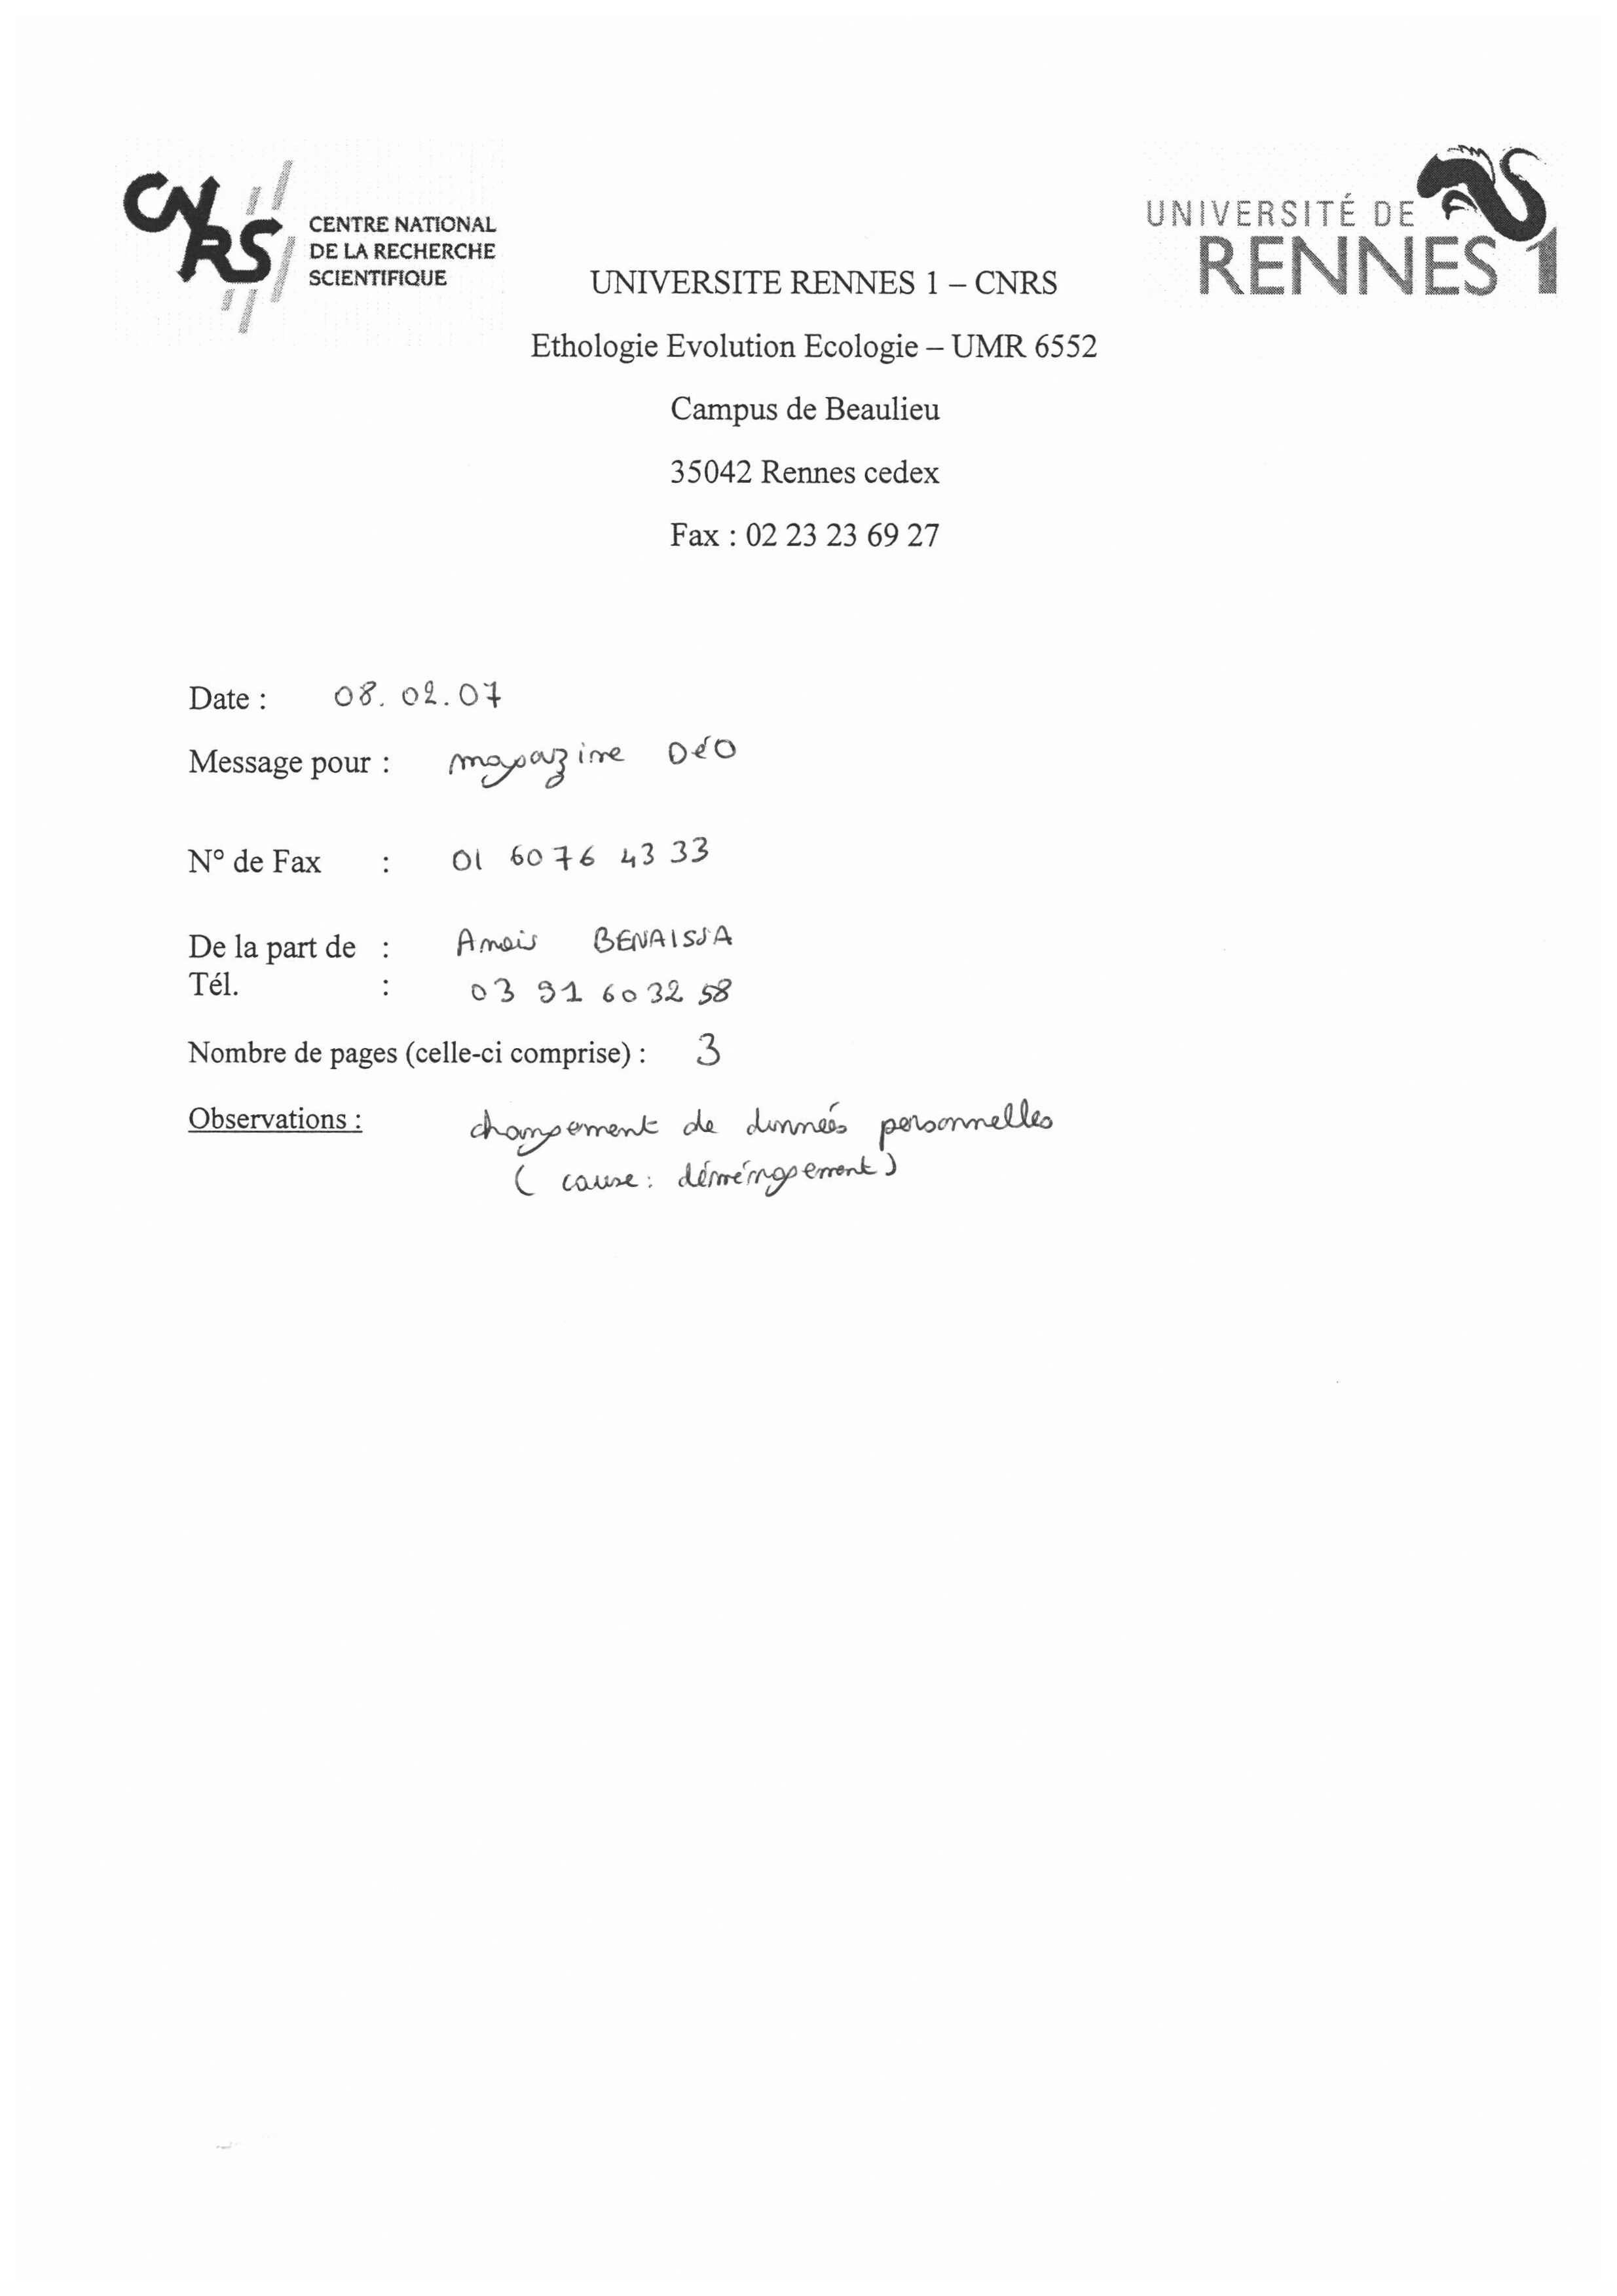 CNRS
CENTRE NATIONAL
DE LA RECHERCHE
SCIENTIFIQUE
UNIVERSITÉ DE
RENNES 1
UNIVERSITE RENNES 1 – CNRS
Ethologie Evolution Ecologie – UMR 6552
Campus de Beaulieu
35042 Rennes cedex
Fax : 02 23 23 69 27
Date : 08.02.07
Message pour : magazine DéO
N° de Fax : 01 60 76 43 33
De la part de : Anais BENAISSA
Tél. : 03 91 60 32 58
Nombre de pages (celle-ci comprise) : 3
Observations : changement de données personnelles
( cause : déménagement )